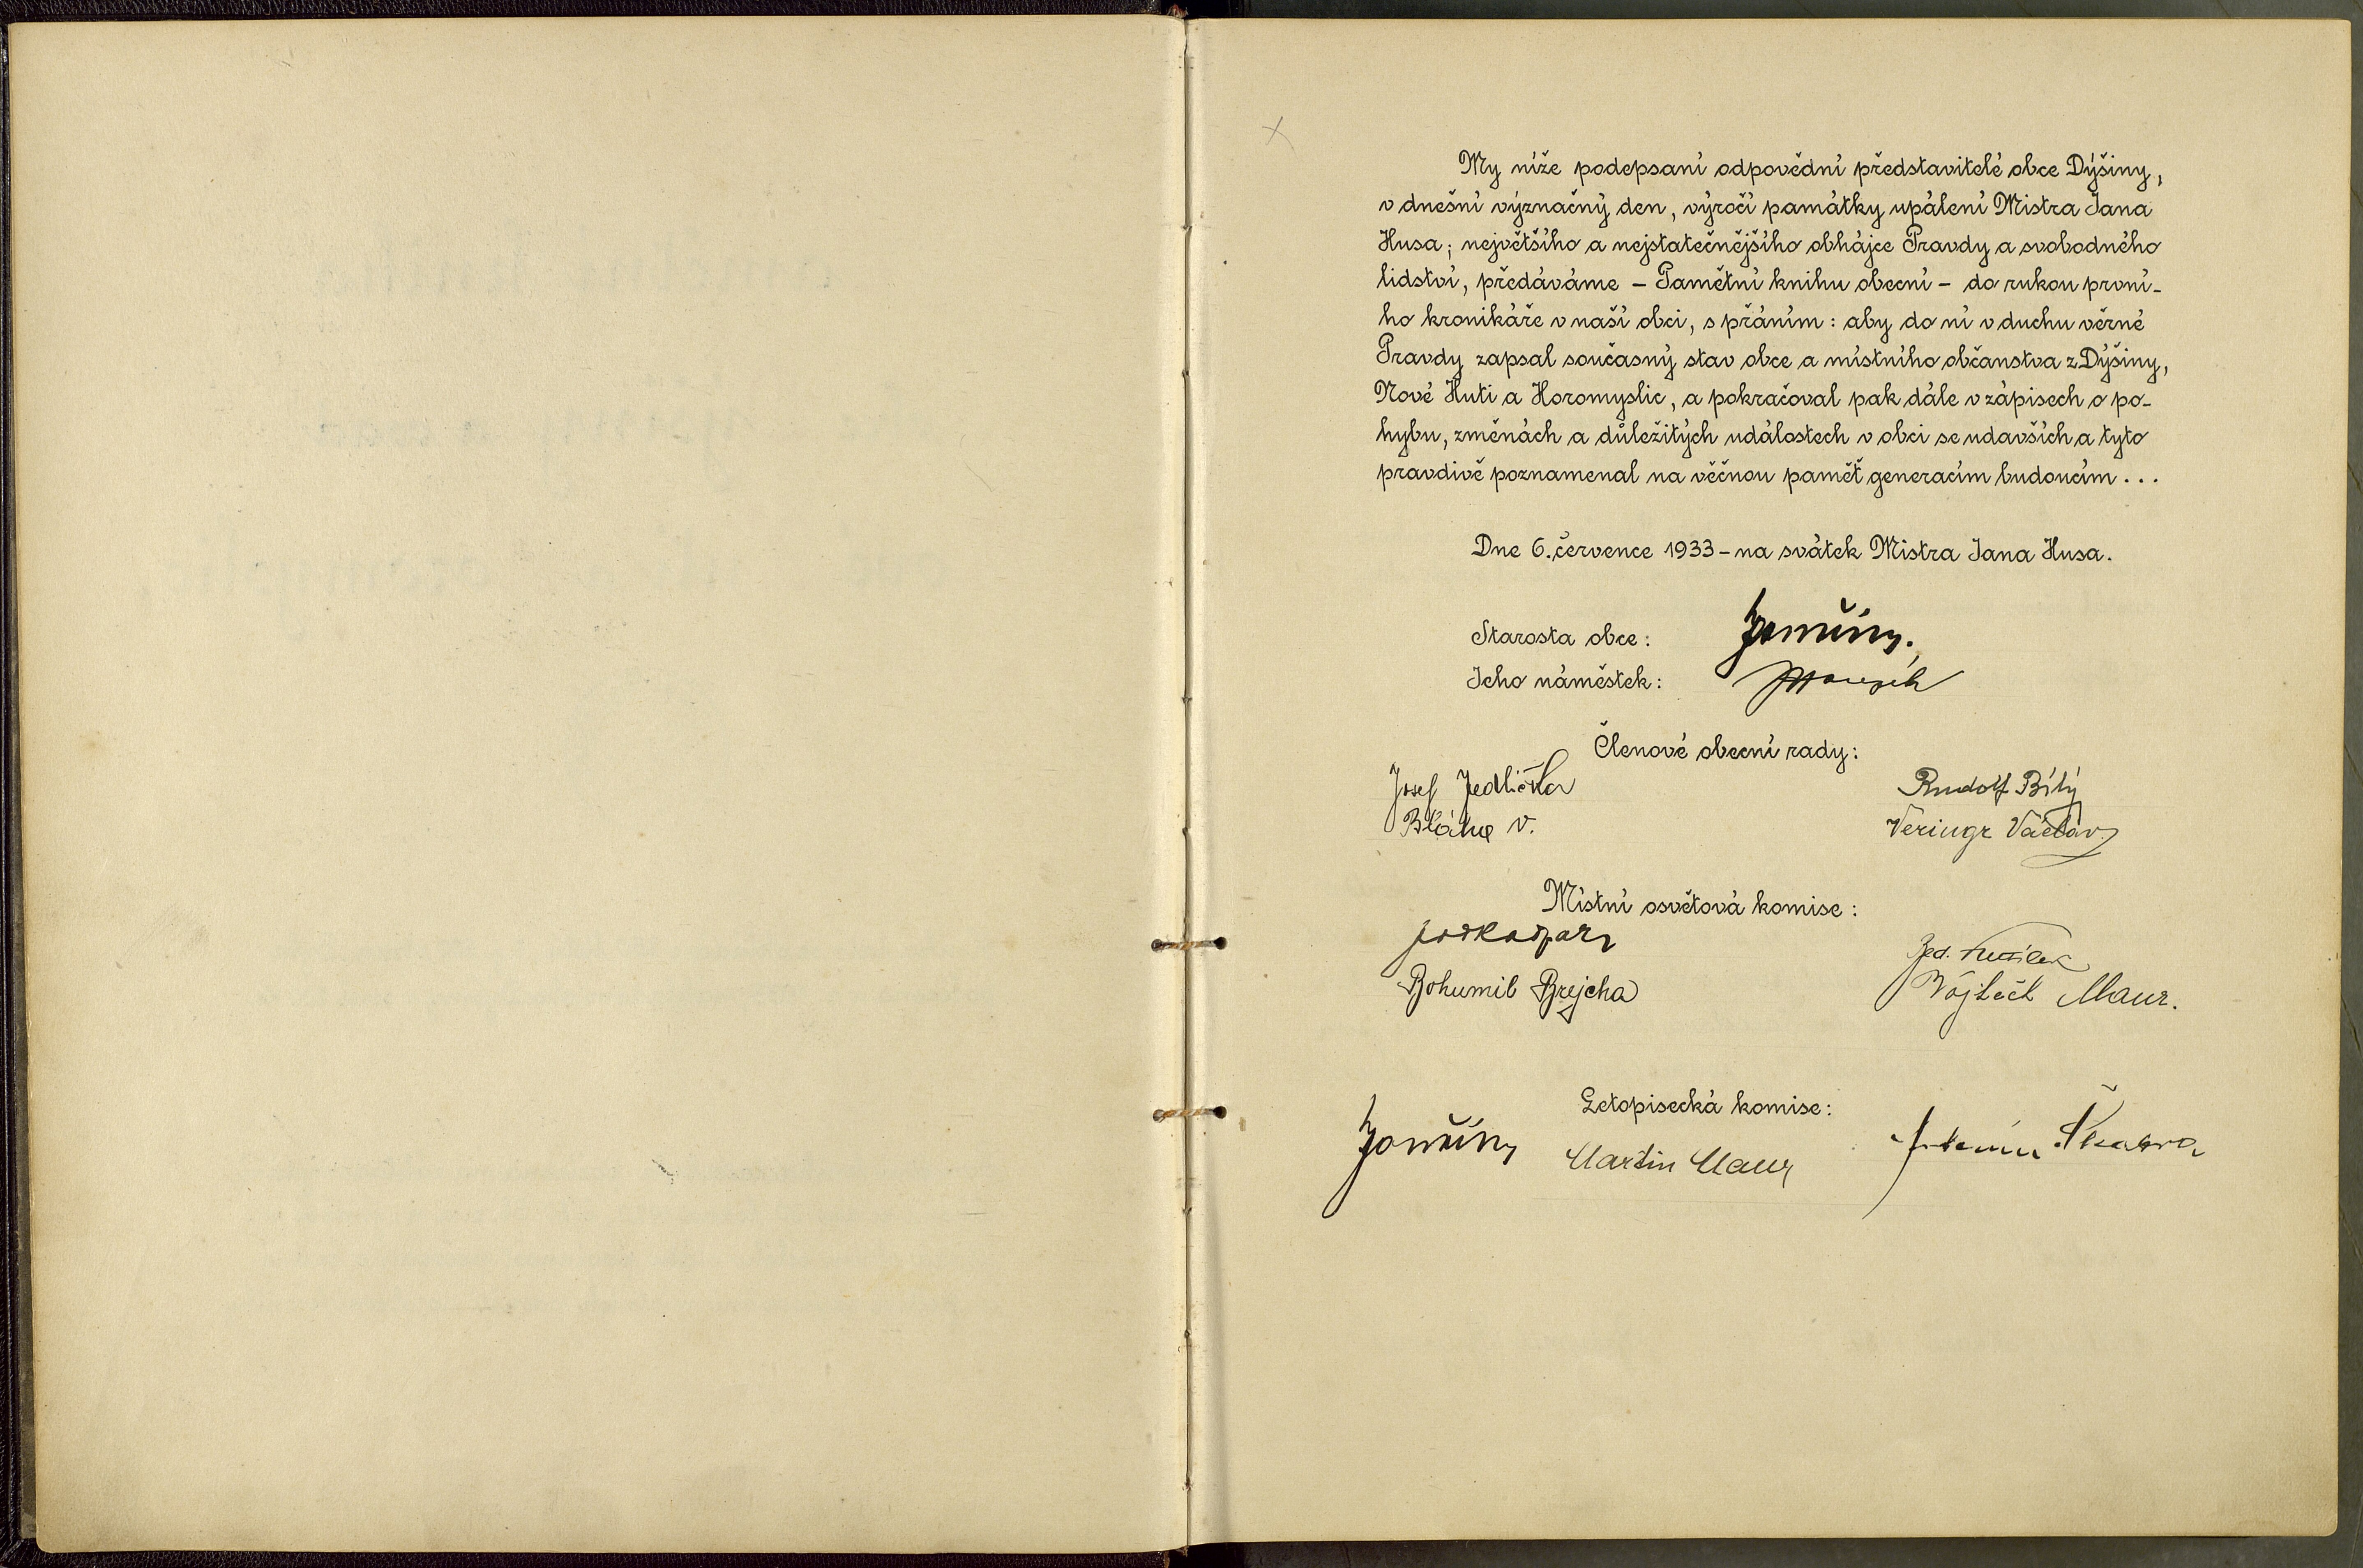 My níže podepsaní odpovědní představitelé obce Dýšiny,
v dnešní význačný den, výročí památky upálení Mistra Jana
Husa; největšího a nejstatečnějšího obhájce Pravdy a svobodného
lidství, předáváme – Pamětní knihu obecní – do rukou první-
ho kronikáře v naší obci, s přáním: aby do ní v duchu věrné
Pravdy zapsal současný stav obce a místního občanstva z Dýšiny,
Nové Huti a Horomyslic, a pokračoval pak dále v zápisech o po-
hybu, změnách a důležitých událostech v obci se udavších a tyto
pravdivě poznamenal na věčnou paměť generacím budoucím...
Dne 6. července 1933 – na svátek Mistra Jana Husa.
Starosta obce:
Jeho náměstek:
Členové obecní rady:
Josef Jedlička
Rudolf Bílý
Bláha V.
Veringr Václav
Místní osvětová komise:
Bohumil Brejcha
Vojtěch Maur.
Letopisecká komise:
Martin Maur